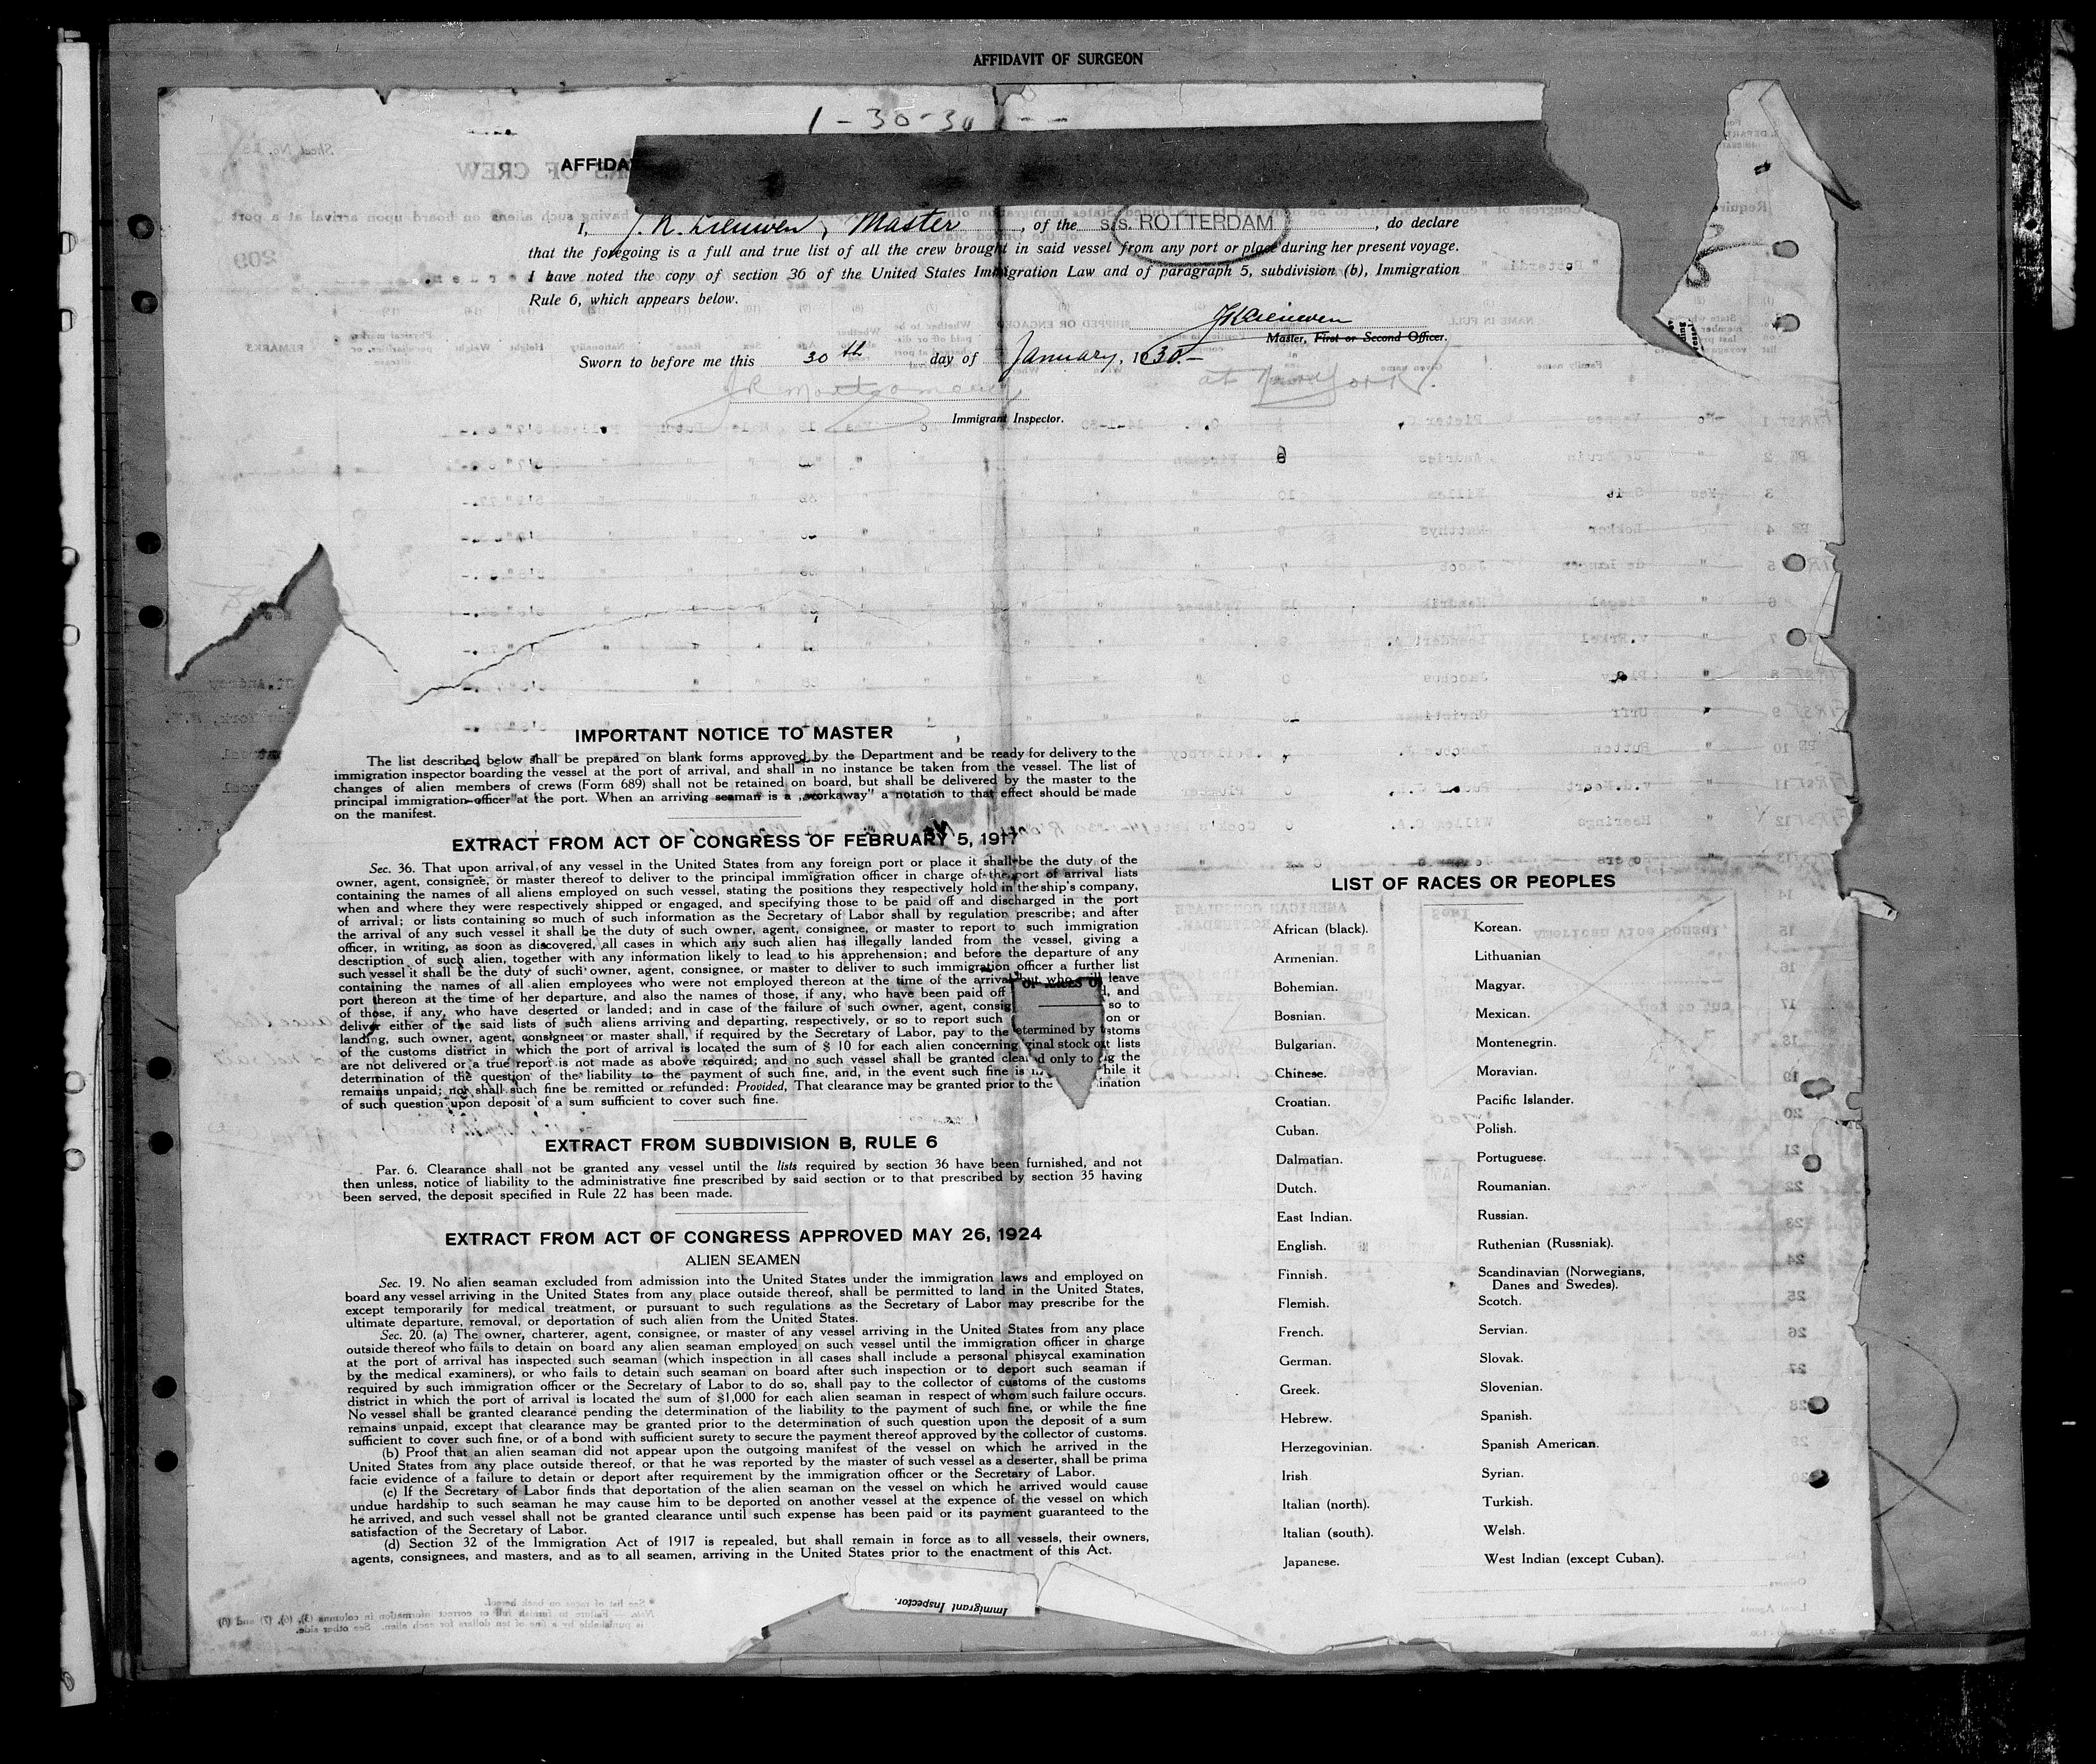 AFFIDAVIT OF SURGEON
1-30-30
AFFIDA
I, Master, of the s.s. ROTTERDAM, do declare
that the foregoing is a full and true list of all the crew brought in said vessel from any port or place during her present voyage.
I have noted the copy of section 36 of the United States Immigration Law and of paragraph 5, subdivision (b), Immigration
Rule 6, which appears below.
Master, First or Second Officer.
Sworn to before me this 30th day of January, 1930.-
at New York
Immigrant Inspector.
IMPORTANT NOTICE TO MASTER
The list described below shall be prepared on blank forms approved by the Department and be ready for delivery to the
immigration inspector boarding the vessel at the port of arrival, and shall in no instance be taken from the vessel. The list of
changes of alien members of crews (Form 689) shall not be retained on board, but shall be delivered by the master to the
principal immigration officer at the port. When an arriving seaman is a „workaway" a notation to that effect should be made
on the manifest.
EXTRACT FROM ACT OF CONGRESS OF FEBRUARY 5, 1917
Sec. 36. That upon arrival of any vessel in the United States from any foreign port or place it shall be the duty of the
owner, agent, consignee, or master thereof to deliver to the principal immigration officer in charge of the port of arrival lists
containing the names of all aliens employed on such vessel, stating the positions they respectively hold in the ship's company,
when and where they were respectively shipped or engaged, and specifying those to be paid off and discharged in the port
of arrival; or lists containing so much of such information as the Secretary of Labor shall by regulation prescribe; and after
the arrival of any such vessel it shall be the duty of such owner, agent, consignee, or master to report to such immigration
officer, in writing, as soon as discovered, all cases in which any such alien has illegally landed from the vessel, giving a
description of such alien, together with any information likely to lead to his apprehension; and before the departure of any
such vessel it shall be the duty of such owner, agent, consignee, or master to deliver to such immigration officer a further list
containing the names of all alien employees who were not employed thereon at the time of the arrival but who will leave
port thereon at the time of her departure, and also the names of those, if any, who have been paid off and
of those, if any, who have deserted or landed; and in case of the failure of such owner, agent, consig so to
deliver either of the said lists of such aliens arriving and departing, respectively, or so to report such on or
landing, such owner, agent, consignee, or master shall, if required by the Secretary of Labor, pay to the etermined by stoms
of the customs district in which the port of arrival is located the sum of $ 10 for each alien concerning ginal stock lists
are not delivered or a true report is not made as above required; and no such vessel shall be granted clea d only to g the
determination of the question of the liability to the payment of such fine, and, in the event such fine is hile it
remains unpaid; nor shall such fine be remitted or refunded: Provided, That clearance may be granted prior to the ination
of such question upon deposit of a sum sufficient to cover such fine.
EXTRACT FROM SUBDIVISION B, RULE 6
Par. 6. Clearance shall not be granted any vessel until the lists required by section 36 have been furnished, and not
then unless, notice of liability to the administrative fine prescribed by said section or to that prescribed by section 35 having
been served, the deposit specified in Rule 22 has been made.
EXTRACT FROM ACT OF CONGRESS APPROVED MAY 26, 1924
ALIEN SEAMEN
Sec. 19. No alien seaman excluded from admission into the United States under the immigration laws and employed on
board any vessel arriving in the United States from any place outside thereof, shall be permitted to land in the United States,
except temporarily for medical treatment, or pursuant to such regulations as the Secretary of Labor may prescribe for the
ultimate departure, removal, or deportation of such alien from the United States.
Sec. 20. (a) The owner, charterer, agent, consignee, or master of any vessel arriving in the United States from any place
outside thereof who fails to detain on board any alien seaman employed on such vessel until the immigration officer in charge
at the port of arrival has inspected such seaman (which inspection in all cases shall include a personal phisycal examination
by the medical examiners), or who fails to detain such seaman on board after such inspection or to deport such seaman if
required by such immigration officer or the Secretary of Labor to do so, shall pay to the collector of customs of the customs
district in which the port of arrival is located the sum of $1,000 for each alien seaman in respect of whom such failure occurs.
No vessel shall be granted clearance pending the determination of the liability to the payment of such fine, or while the fine
remains unpaid, except that clearance may be granted prior to the determination of such question upon the deposit of a sum
sufficient to cover such fine, or of a bond with sufficient surety to secure the payment thereof approved by the collector of customs.
(b) Proof that an alien seaman did not appear upon the outgoing manifest of the vessel on which he arrived in the
United States from any place outside thereof, or that he was reported by the master of such vessel as a deserter, shall be prima
facie evidence of a failure to detain or deport after requirement by the immigration officer or the Secretary of Labor.
(c) If the Secretary of Labor finds that deportation of the alien seaman on the vessel on which he arrived would cause
undue hardship to such seaman he may cause him to be deported on another vessel at the expence of the vessel on which
he arrived, and such vessel shall not be granted clearance until such expense has been paid or its payment guaranteed to the
satisfaction of the Secretary of Labor.
(d) Section 32 of the Immigration Act of 1917 is repealed, but shall remain in force as to all vessels, their owners,
agents, consignees, and masters, and as to all seamen, arriving in the United States prior to the enactment of this Act.
Immigrant Inspector.
LIST OF RACES OR PEOPLES
African (black).
Armenian.
Bohemian.
Bosnian.
Bulgarian.
Chinese.
Croatian.
Cuban.
Dalmatian.
Dutch.
East Indian.
English.
Finnish.
Flemish.
French.
German.
Greek.
Hebrew.
Herzegovinian.
Irish
Italian (north).
Italian (south).
Japanese.
Korean.
Lithuanian
Magyar.
Mexican.
Montenegrin.
Moravian.
Pacific Islander.
Polish.
Portuguese.
Roumanian.
Russian.
Ruthenian (Russniak).
Scandinavian (Norwegians,
Danes and Swedes).
Scotch.
Servian.
Slovak.
Slovenian.
Spanish.
Spanish American.
Syrian.
Turkish.
Welsh.
West Indian (except Cuban).